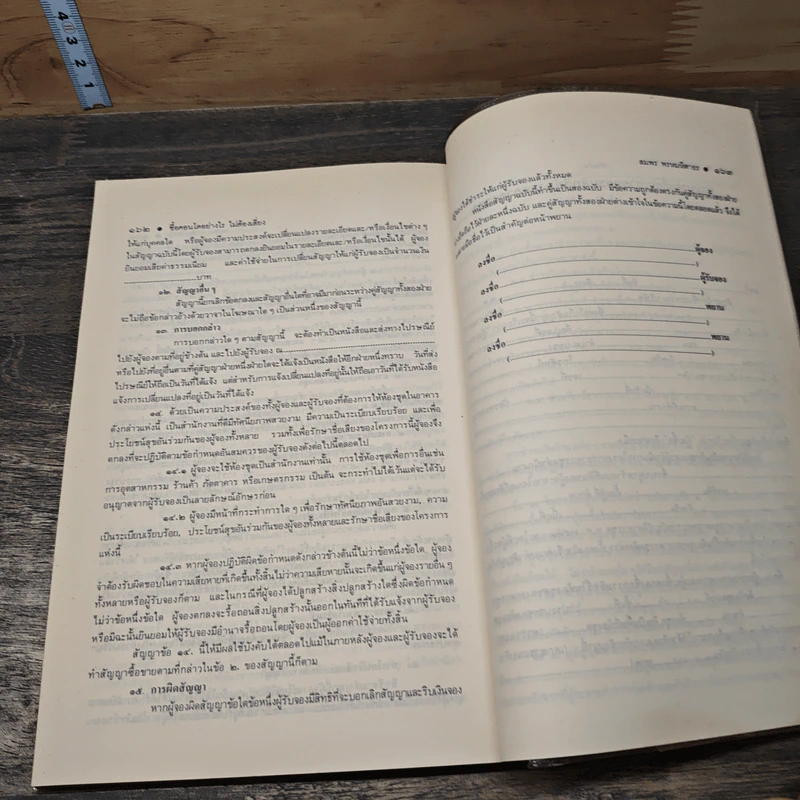 4
3
2
1
๑๖๒ • ซื้อคอนโดอย่างไร ไม่ต้องเสี่ยง
ให้แก่บุคคลใด หรือผู้จองมีความประสงค์จะเปลี่ยนแปลงรายละเอียดและ/หรือเงื่อนไขต่าง ๆ
ในสัญญาฉบับนี้โดยผู้รับจองสามารถตกลงยินยอมในรายละเอียดและ/หรือเงื่อนไขนั้นได้ ผู้จอง
ยินยอมเสียค่าธรรมเนียม และค่าใช้จ่ายในการเปลี่ยนสัญญาให้แก่ผู้รับจองเป็นจำนวนเงิน
..............................บาท
๑๒. สัญญาอื่น ๆ
สัญญานี้ยกเลิกข้อตกลงและสัญญาอื่นใดที่อาจมีมาก่อนระหว่างคู่สัญญาทั้งสองฝ่าย
จะไม่ถือข้อกล่าวอ้างด้วยวาจาในโฆษณาใด ๆ เป็นส่วนหนึ่งของสัญญานี้
๑๓. การบอกกล่าว
การบอกกล่าวใด ๆ ตามสัญญานี้ จะต้องทำเป็นหนังสือและส่งทางไปรษณีย์
ไปยังผู้จองตามที่อยู่ข้างต้น และไปยังผู้รับจอง ณ..............................
หรือไปยังที่อยู่อื่นตามที่คู่สัญญาฝ่ายหนึ่งฝ่ายใดจะได้แจ้งเป็นหนังสือให้อีกฝ่ายหนึ่งทราบ วันที่ส่ง
ไปรษณีย์ให้ถือเป็นวันที่ได้แจ้ง แต่สำหรับการแจ้งเปลี่ยนแปลงที่อยู่นั้นให้ถือเอาวันที่ได้รับหนังสือ
แจ้งการเปลี่ยนแปลงที่อยู่เป็นวันที่ได้แจ้ง
๑๔. ด้วยเป็นความประสงค์ของทั้งผู้จองและผู้รับจองที่ต้องการให้ห้องชุดในอาคาร
ดังกล่าวแห่งนี้ เป็นสำนักงานที่ดีมีทัศนียภาพสวยงาม มีความเป็นระเบียบเรียบร้อย และเพื่อ
ประโยชน์สุขอันร่วมกันของผู้จองทั้งหลาย รวมทั้งเพื่อรักษาชื่อเสียงของโครงการนี้ผู้จองจึง
ตกลงที่จะปฏิบัติตามข้อกำหนดอันสมควรของผู้รับจองดังต่อไปนี้ตลอดไป
๑๔.๑ ผู้จองจะใช้ห้องชุดเป็นสำนักงานเท่านั้น การใช้ห้องชุดเพื่อการอื่นเช่น
การอุตสาหกรรม ร้านค้า ภัตตาคาร หรือเกษตรกรรม เป็นต้น จะกระทำไม่ได้เว้นแต่จะได้รับ
อนุญาตจากผู้รับจองเป็นลายลักษณ์อักษรก่อน
๑๔.๒ ผู้จองมีหน้าที่กระทำการใด ๆ เพื่อรักษาทัศนียภาพอันสวยงาม, ความ
เป็นระเบียบเรียบร้อย, ประโยชน์สุขอันร่วมกันของผู้จองทั้งหลายและรักษาชื่อเสียงของโครงการ
แห่งนี้
๑๔.๓ หากผู้จองปฏิบัติผิดข้อกำหนดดังกล่าวข้างต้นนี้ไม่ว่าข้อหนึ่งข้อใด ผู้จอง
จำต้องรับผิดชอบในความเสียหายที่เกิดขึ้นทั้งสิ้นไม่ว่าความเสียหายนั้นจะเกิดขึ้นแก่ผู้จองรายอื่น ๆ
ทั้งหลายหรือผู้รับจองก็ตาม และในกรณีที่ผู้จองได้ปลูกสร้างสิ่งปลูกสร้างใดซึ่งผิดข้อกำหนด
ไม่ว่าข้อหนึ่งข้อใด ผู้จองตกลงจะรื้อถอนสิ่งปลูกสร้างนั้นออกในทันทีที่ได้รับแจ้งจากผู้รับจอง
หรือมิฉะนั้นยินยอมให้ผู้รับจองมีอำนาจรื้อถอนโดยผู้จองเป็นผู้ออกค่าใช้จ่ายทั้งสิ้น
สัญญาข้อ ๑๔. นี้ให้มีผลใช้บังคับได้ตลอดไปแม้ในภายหลังผู้จองและผู้รับจองจะได้
ทำสัญญาซื้อขายตามที่กล่าวในข้อ ๒. ของสัญญานี้ก็ตาม
๑๕. การผิดสัญญา
หากผู้จองผิดสัญญาข้อใดข้อหนึ่งผู้รับจองมีสิทธิที่จะบอกเลิกสัญญาและริบเงินจอง
สมพร พรหมหิตาธร • ๑๖๓
ผู้จองได้ชำระให้แก่ผู้รับจองแล้วทั้งหมด
หนังสือสัญญาฉบับนี้ทำขึ้นเป็นสองฉบับ มีข้อความถูกต้องตรงกันคู่สัญญาทั้งสองฝ่าย
ยึดถือไว้ฝ่ายละหนึ่งฉบับ และคู่สัญญาทั้งสองฝ่ายต่างเข้าใจในข้อความนี้โดยตลอดแล้ว จึงได้
ลงลายมือชื่อไว้เป็นสำคัญต่อหน้าพยาน
ลงชื่อ..............................ผู้จอง
(..............................)
ลงชื่อ..............................ผู้รับจอง
(..............................)
ลงชื่อ..............................พยาน
(..............................)
ลงชื่อ..............................พยาน
(..............................)